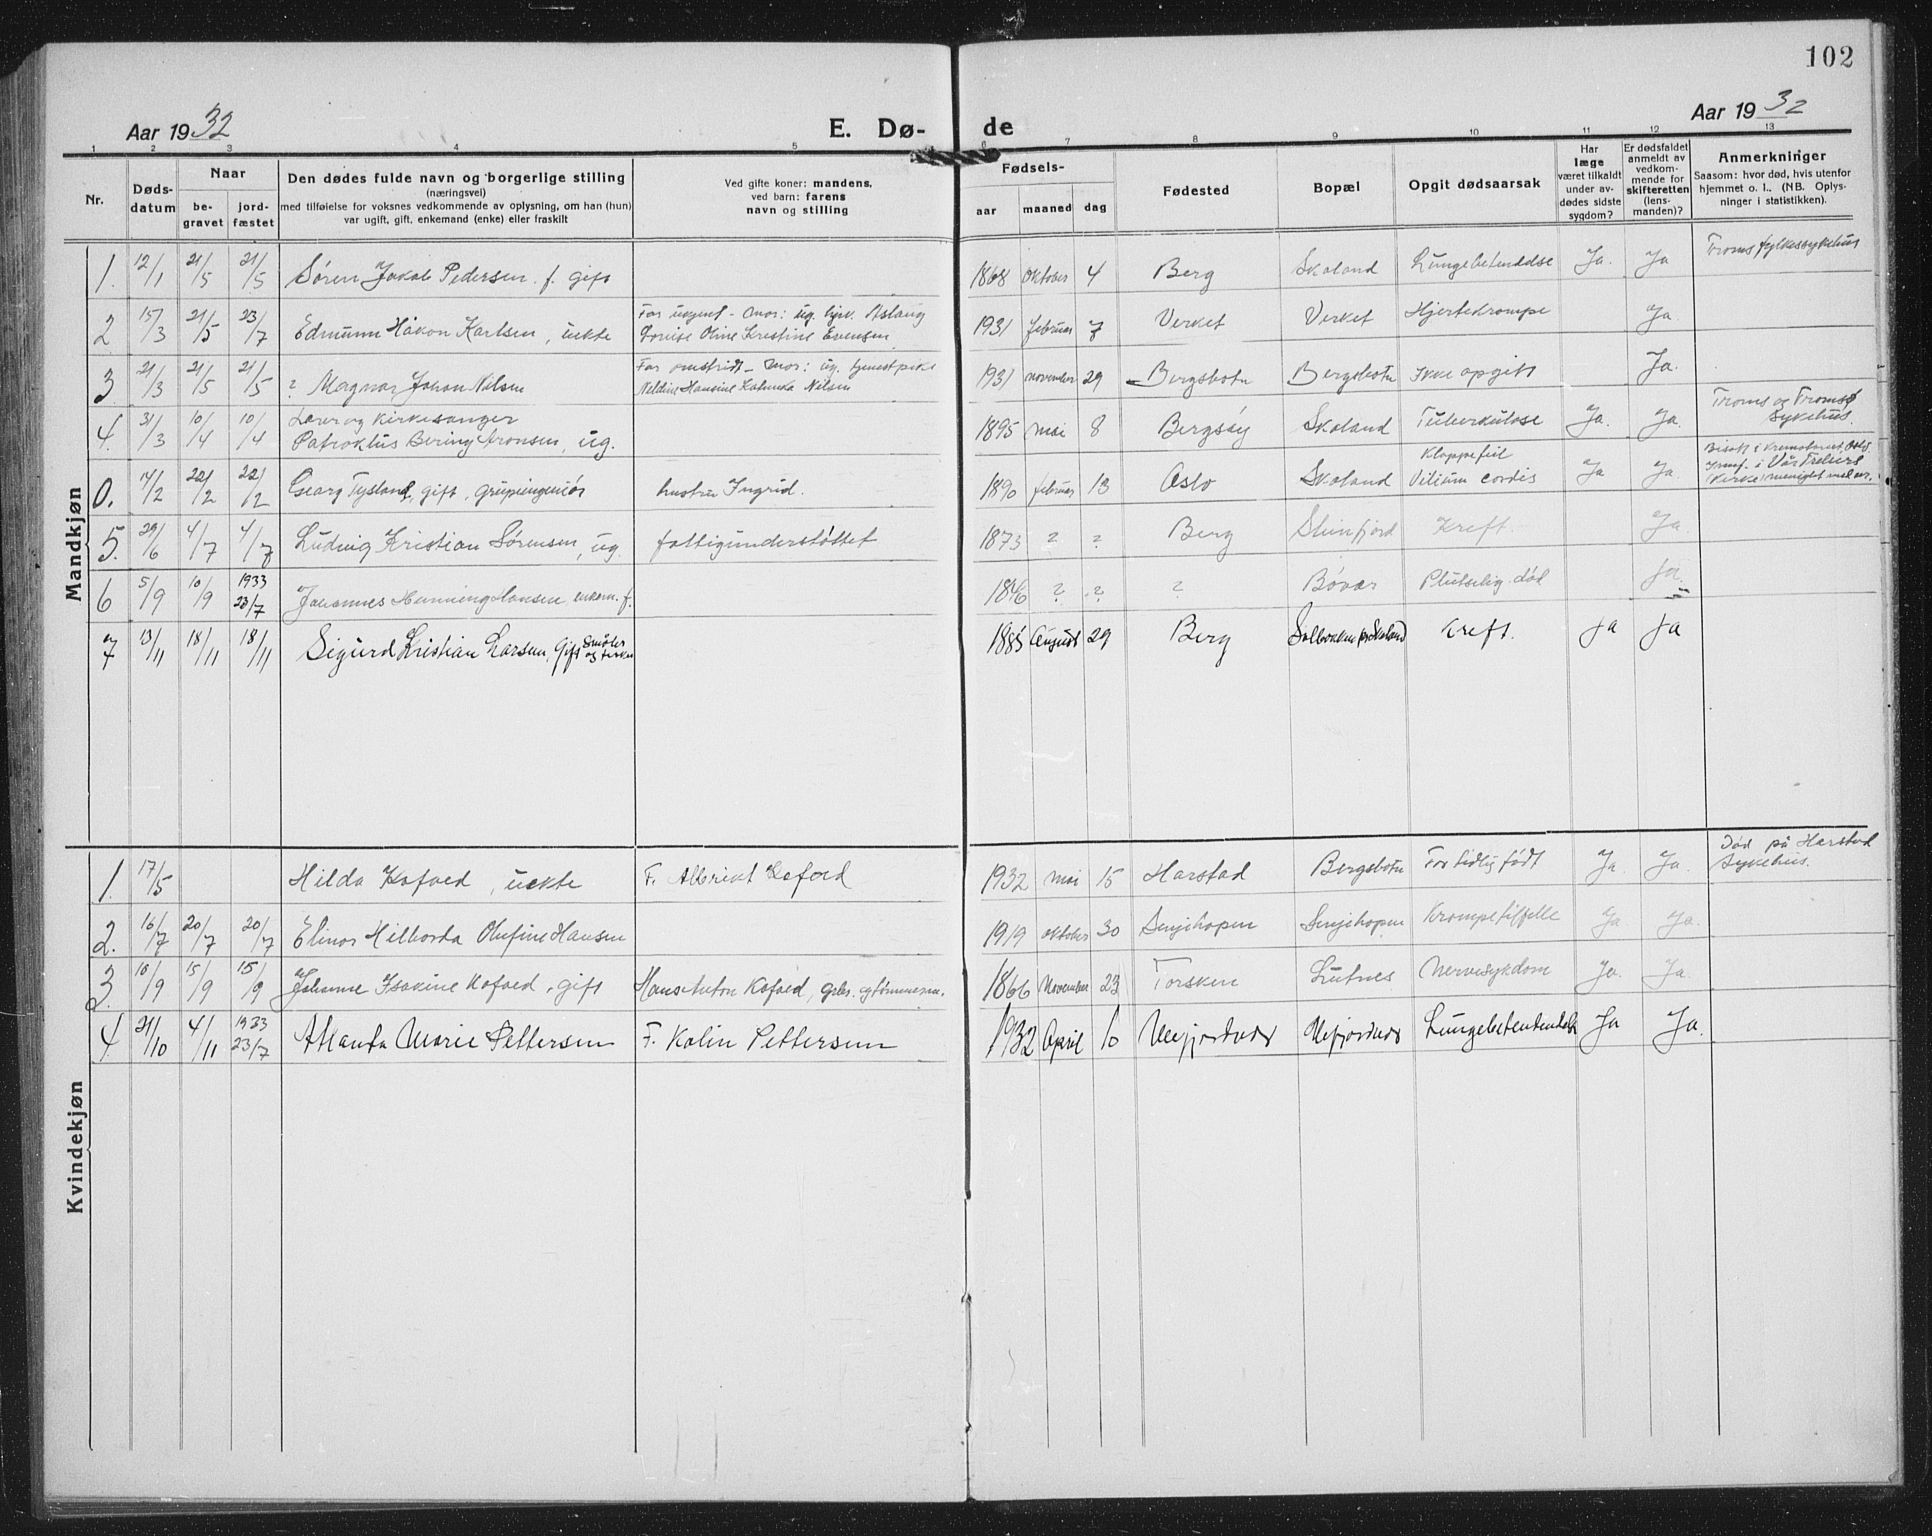 102
Aar 1932
E. Dø-
de
Aar 1932
1 2 3 4 5 6 7 8 9 10 11 12 13
Nr.
Døds-
datum
Naar
be-
gravet
jord-
fæstet
Den dødes fulde navn og borgerlige stilling
(næringsvei)
med tilføielse for voksnes vedkommende av oplysning, om han (hun)
var ugift, gift, enkemand (enke) eller fraskilt
Ved gifte koner: mandens,
ved barn: farens
navn og stilling
Fødsels-
aar maaned dag
Fødested
Bopæl
Opgit dødsaarsak
Har
læge
været tilkaldt
under av-
dødes sidste
sygdom?
Er dødsfaldet
anmeldt av
vedkom-
mende for
skifteretten
(lens-
manden)?
Anmerkninger
Saasom: hvor død, hvis utenfor
hjemmet o. l.. (NB. Oplys-
ninger i statistikken).
Mandkjøn
1. 12/1 21/5 21/5 Søren Jakob Pedersen f. gift 1868 oktober 4 Berg Skaland Lungebetendelse Ja. Ja Troms fylkessykehus
2 15/3 21/5 23/7 Edmunn Håkon Karlsen, uekte
Far ukjent - Mor: ug. Aslaug
Lovise Oline Kristine Evensen
1931 februar 7 Verket Verket Hjertekrampe Ja.
3 21/3 21/5 21/5 ? Magnar Johan Nilsen
Far omstridt - Mor: ug. tjenestpike
Nildine Hansine Nilsen
1931 november 29 Bergsbotn Bergsbotn Ikke opgitt Ja.
4. 31/3 10/4 10/4 Lærer og kirkesanger
Patroklus Bering Aronsen, ug. 1895 mai 8 Bergsøy Skaland Tuberkulose Ja. Ja.
Troms og Tromsø
Sykehus.
0. 14/2 22/2 22/2 Georg Tysland, gift, grupeingeniør hustru Ingrid. 1890 februar 13 Oslo Skaland
Klappefeil
Vitium cordis Ja Ja.
Bisatt i Krematoriet, Oslo
i Vår Frelsers
5. 29/6 4/7 4/7 Ludvig Kristian Sørensen, ug. fattigunderstøttet 1873 ? ? Berg Steinfjord Kreft. Ja.
6 5/9 10/9 1933 23/7 Johannes Henning Hansen, enkem. f. 1846 ? ? ? Bøvær Plutselig død Ja.
7 13/11 18/11 18/11 Sigurd Kristian Larsen, Gift Småbr. og fisker 1885 August 29 Berg Solbakken pr Skaland Kreft. Ja Ja
Kvindekjøn
1. 17/5 Hilda Kofoed, uekte F. Albrikt Kofoed 1932 mai 15 Harstad Bergsbotn For tidlig født Ja. Ja.
Død på Harstad
Sykehus.
2. 16/7 20/7 20/7 Elinor Hilborda Olufine Hansen 1919 oktober 30 Senjehopen Senjehopen Krampetilfelle Ja. Ja.
3 10/9 15/9 15/9 Johanne Isakine Kofoed, gift Hans Anton Kofoed, 1866 November 23 Torsken Lutnes Nervesykdom Ja. Ja.
4 21/10 4/11 1933 23/7 Marie Pettersen F. Kolin Pettersen 1932 April 10 Mefjordvær Mefjordvær Lungebetendelse Ja Ja.